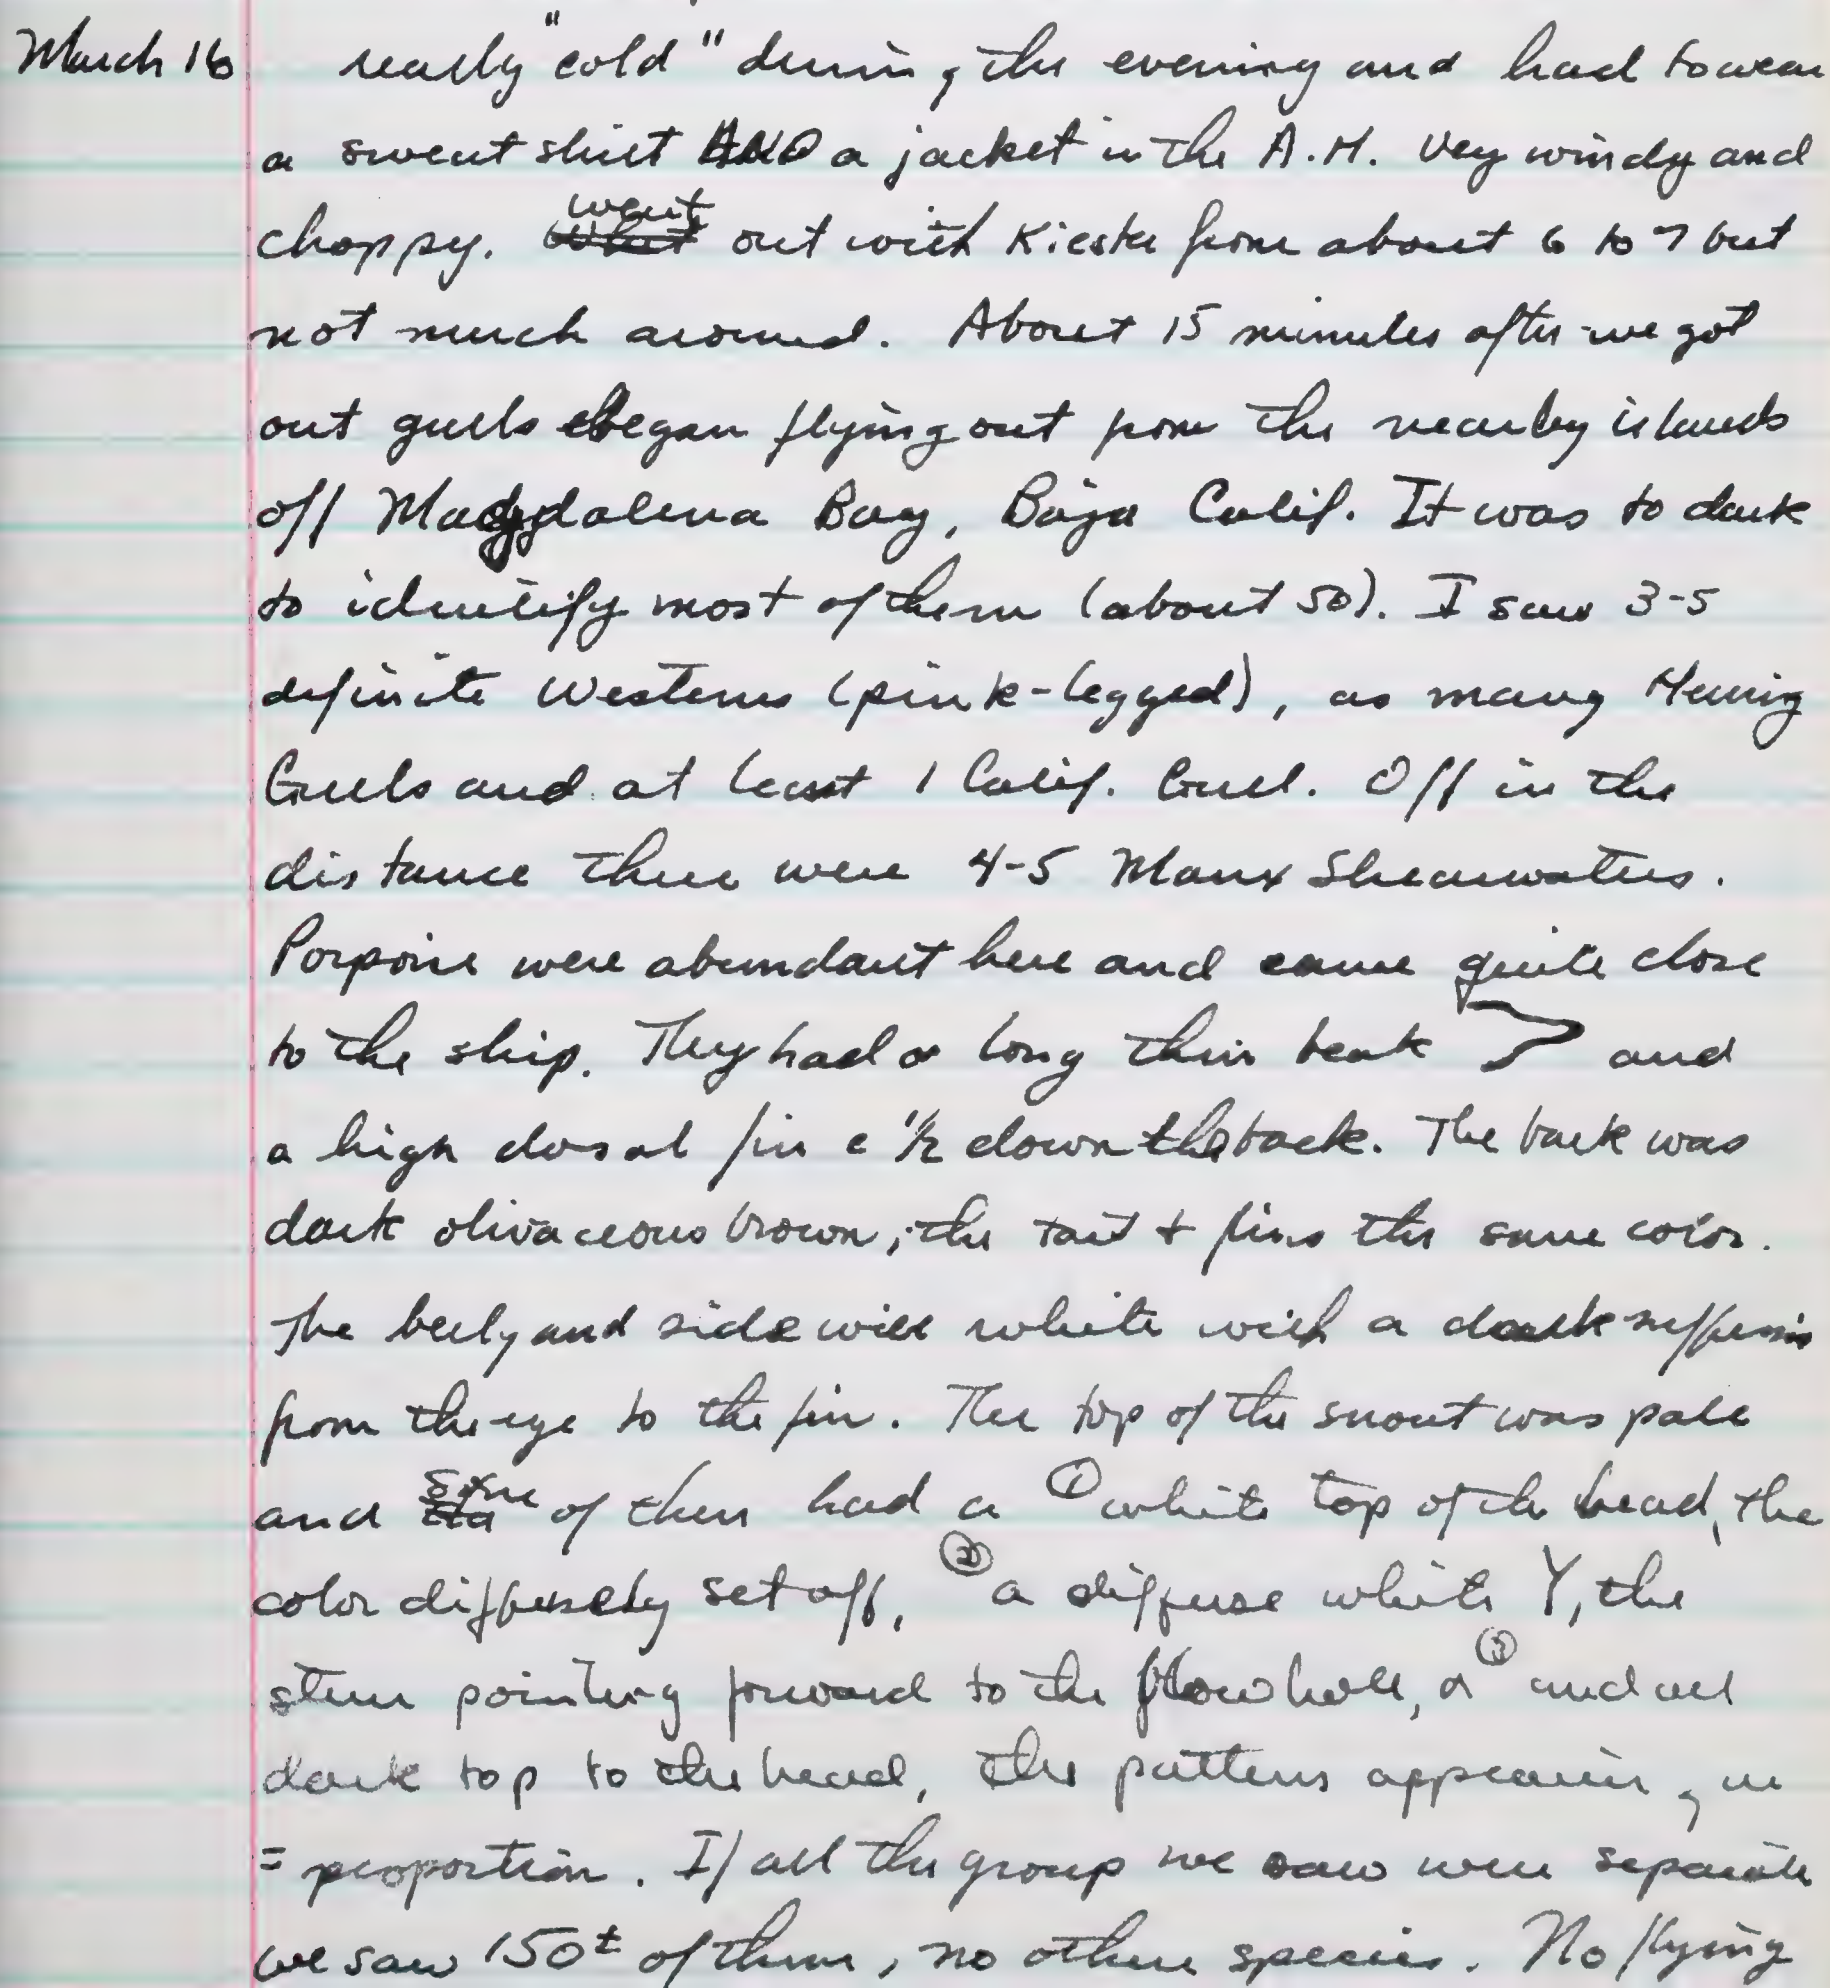 March 16 really "cold" during the evening and had to wear
a sweat shirt AND a jacket in the A.M. Very windy and
choppy. went out with Kiesta from about 6 to 7 but
not much around. About 15 minutes after we got
out gulls began flying out from the nearby islands
off Magdalena Bay, Baja Calif. It was to dark
to identify most of them (about 50). I saw 3-5
definite Westerns (pink-legged), as many Herring
Gulls and at least 1 Calif. Gull. Off in the
distance there were 4-5 Manx Shearwaters.
Porpoise were abundant here and came quite close
to the ship. They had a long thin beak and
a high dorsal fin c 1/2 down the back. The back was
dark olivaceous brown, the tail + fins the same color.
The belly and side were white with a dark suffusion
from the eye to the fin. The top of the snout was pale
and some of them had a ① white top of the head, the
color diffusely set off, ② a diffuse white Y, the
stem pointing forward to the blow hole, or ③ and all
dark top to the head, the patterns appearing in
= proportion. If all the group we saw were separate
we saw 150± of them, no other species. No flying